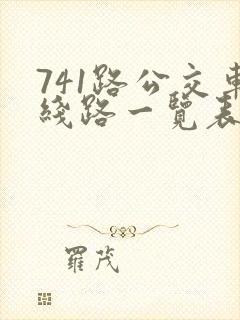 741路公交車
綫路一覽表
羅茂